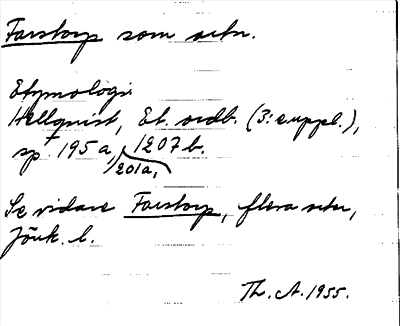 Farstorp som ortn.
Etymologi.
Hellquist, Et. ordb. (3: suppl.),
sp. 195 a, 1207 b.
201a,
Se vidare Farstorp, flera ortn,
Jönk. l.
Th. A. 1955.